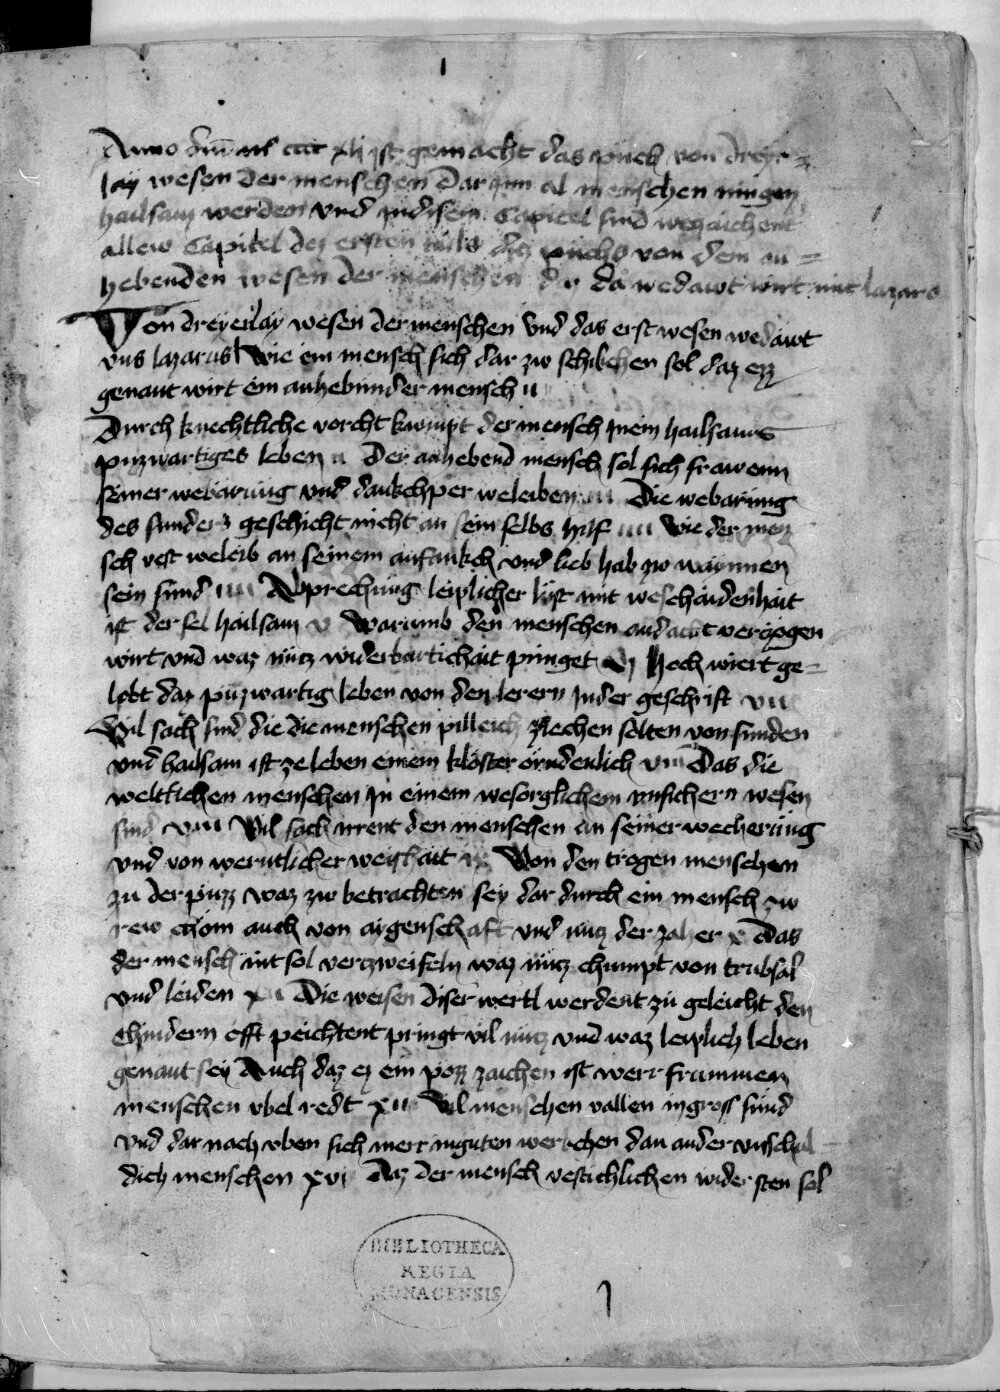 1
Anno dm̄ m cccc xlij ist gemacht das puch von dreyr=
lay wesen der menschen Dar jnn al menschen mugen
hailsam werden vnd jndisem Capitel sind wezaichent
allew Capitel dez ersten tails diz puchs von dem an=
hebenden wesen der menschen da wedawt wirt mit lazaro
Von dreyerlay wesen der menschen Vnd das erst wesen wedawt
vns lazarus Wie ein mensch sich dar zw schikchen sol daz er
genant wirt ein anhebunder mensch ii
Durch knechtliche vorcht kumpt der mensch jn ein hailsams
puzwartiges leben ii Der anhebend mensch sol sich frawenn
seiner webarung vnd dankchper weleiben iii Die webarung
des sunders geschicht nicht an sein selbs hilf iiii Wie der men
sch vest weleib an seinem anfankch vnd lieb hab zw waynnen
sein sund iiii Abprechung leiplicher lust mit weschaidenhait
ist der sel hailsam v Warumb den menschen andacht verczogen
wirt vnd waz nutz widerbartichait pringet vj Hoch wiert ge=
lobt daz puzwartig leben von den lerern jn der geschrift vii
Vil sach sind die die menschen pilleich zyechen solten von sunden
vnd hailsam ist ze leben einem kloster orndenlich viii Das die
weltlichen menschen jn einem wesorglichem vnsichern wesen
sind viiii Vil sach irrent den menschen an seiner wecherung
vnd von werntlicher weishait ix Von den trogen menschen
zu der puzz waz zw betrachten sey dar durch ein mensch zw
rew chöm auch von aygenschaft vnd nutz der zaher x Das
der mensch nit sol verczweifeln waz nutz chumpt von trubsal
vnd leiden xii Die weisen diser werlt werdent zu geleicht den
chindern offt peichtent pringt vil nutz vnd waz leiplich leben
genant sey Auch daz ez ein pozz zaichen ist wer frummen
menschen vbel redt xii Vil menschen vallen in gross sund
vnd dar nach vben sich merr in guten werchen dan ander vnschul=
dich menschen xvi Daz der mensch vestichlichen wider sten sol
BIBLIOTHECA
REGIA
MONACENSIS